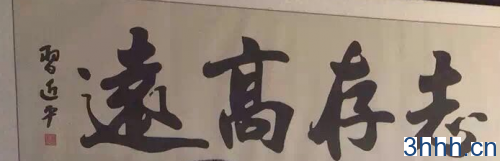 志存高遠
習近平
3hhh.cn